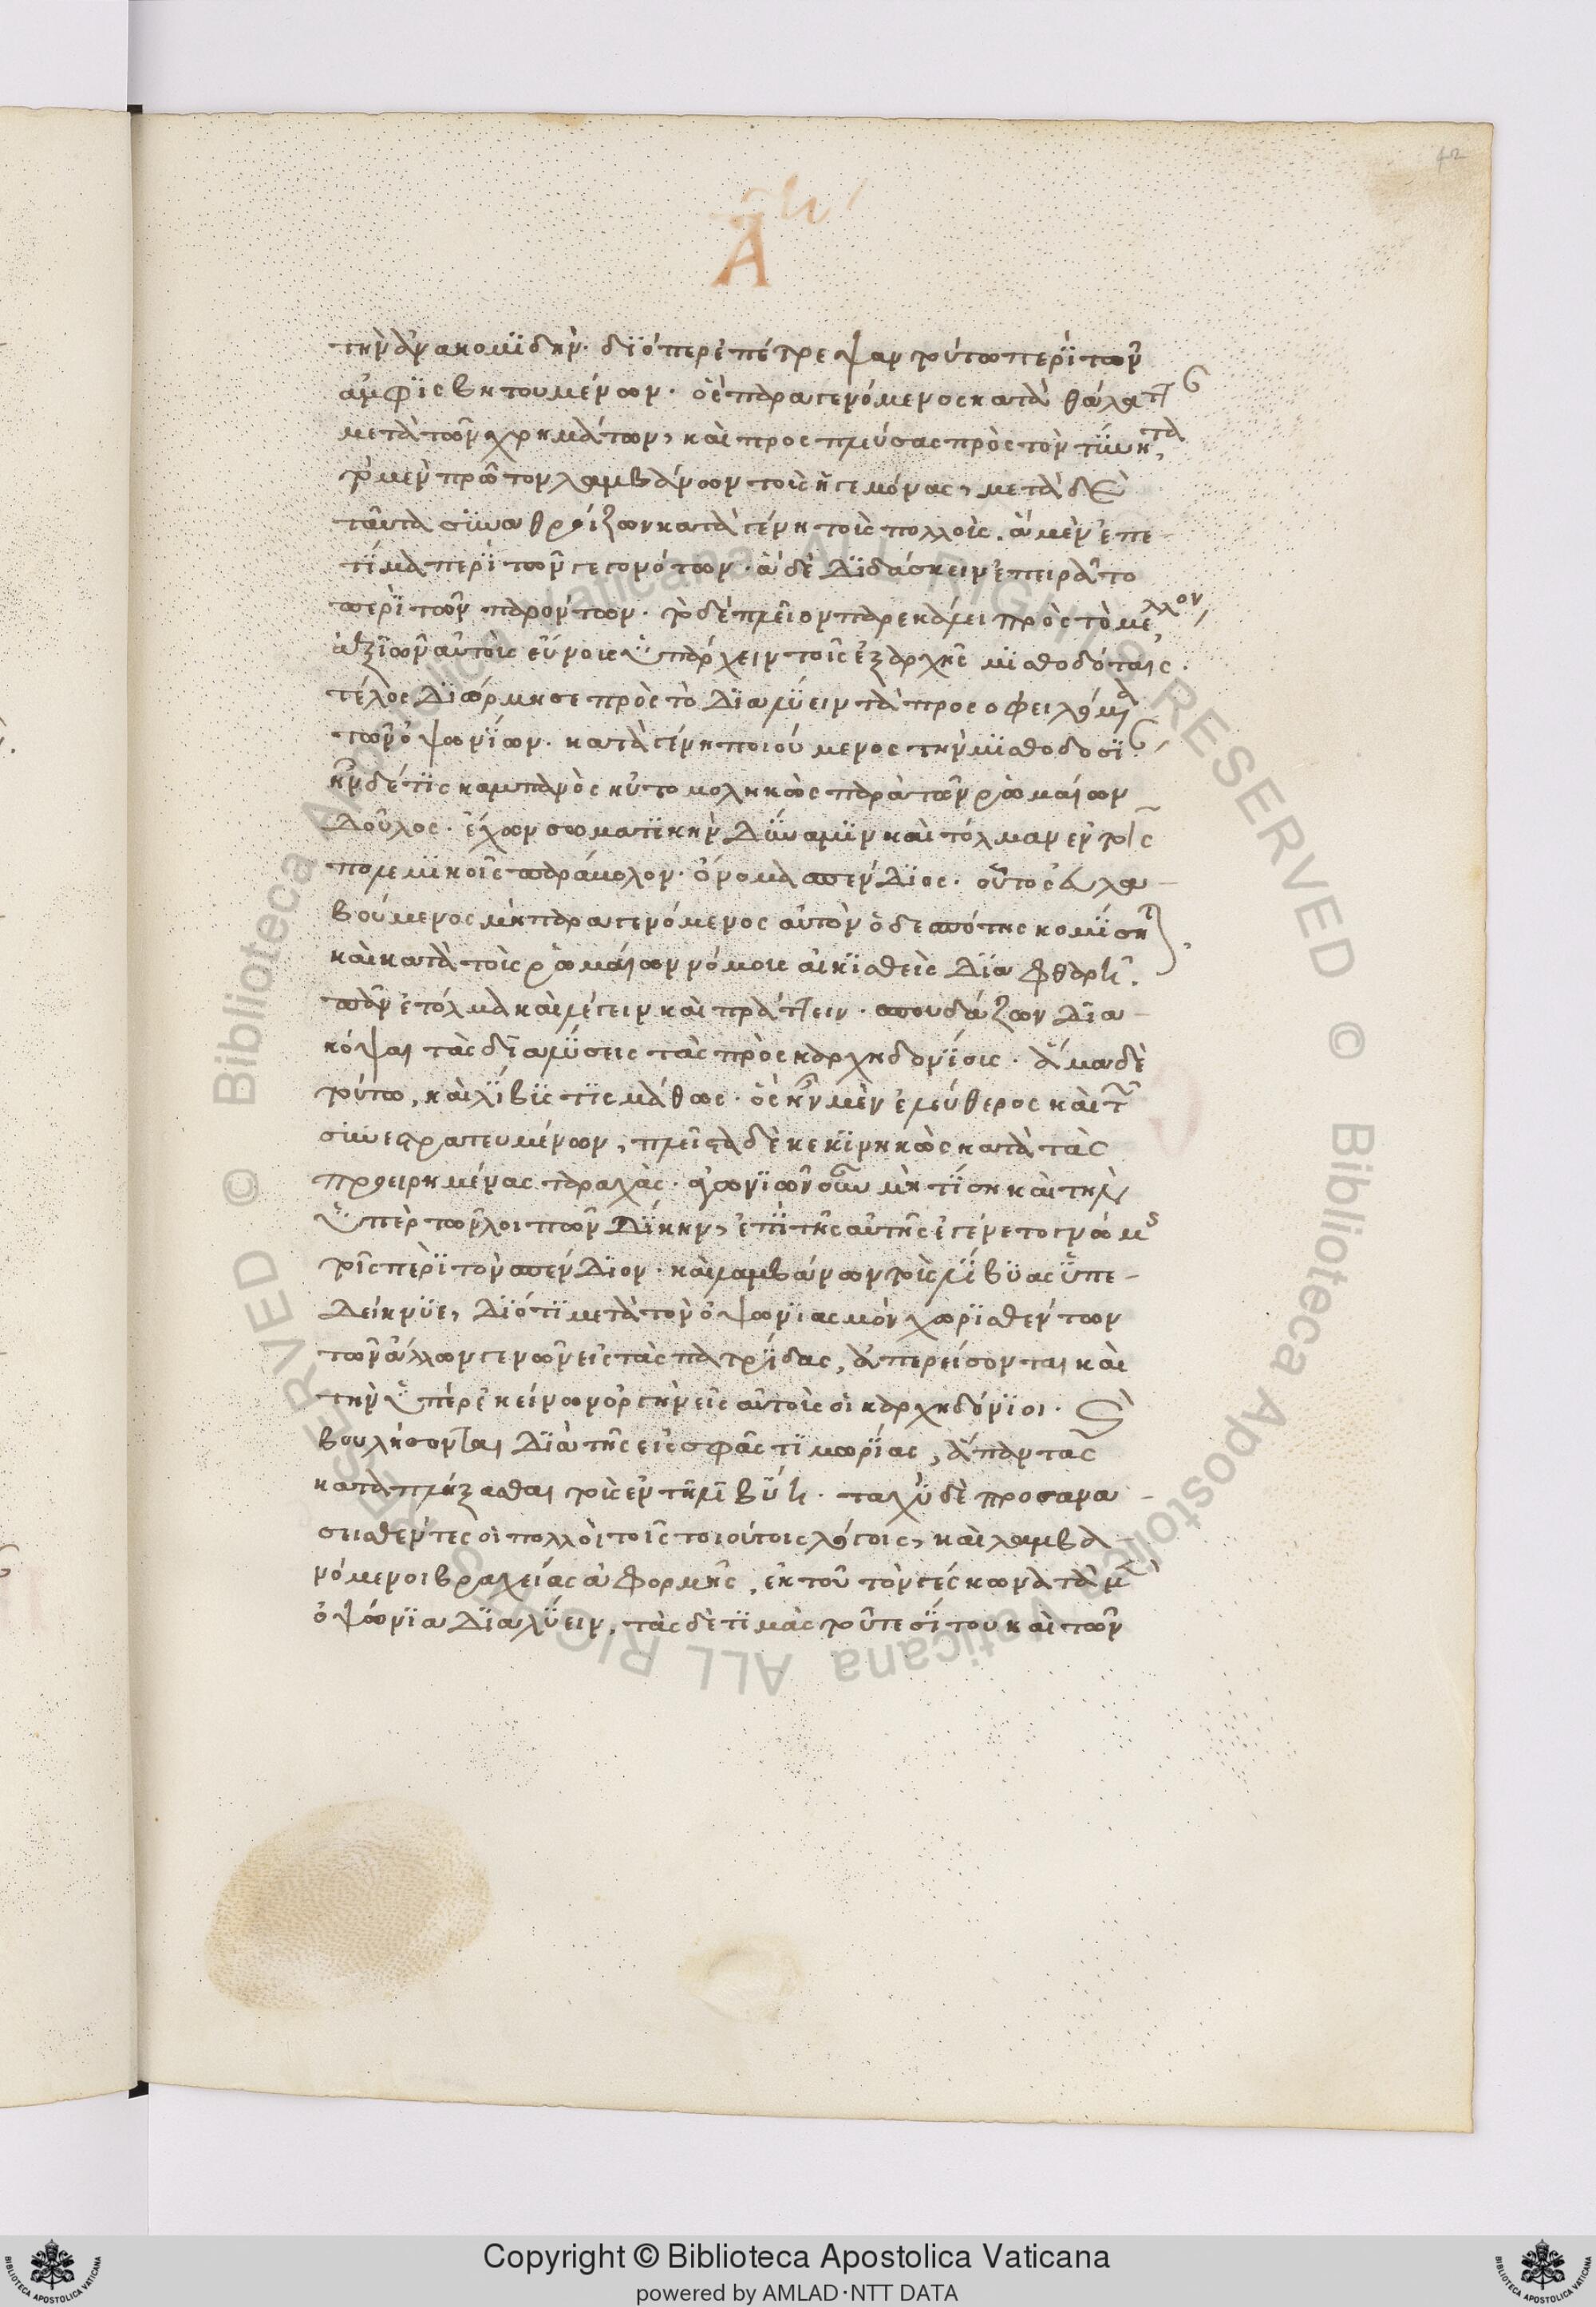 42
Α
τὴν ἀνακομϊδὴν· δϊόπερ ἐπέτρεψαν τούτω περῒ τῶν
ἀμφϊσβητουμένων· ὃς παραγενόμενος κατὰ θάλατταν
μετὰ τῶν χρημάτων, καὶ προσπλεύσας πρὸς τὸν τΰνητα,
τὸ μὲν πρῶτον λαμβάνων τοὺς ἡγεμόνας, μετὰ δὲ
ταῦτα συναθροίζων κατὰ γένη τοὺς πολλοὺς· ἃ μὲν ἐπε-
τίμα περῒ τῶν γεγονότων· ἃ δὲ δϊδάσκειν ἐπειρᾶτο
περῒ τῶν παρόντων· τὸ δὲ πλεῖον παρεκάλει πρὸς τὸ μέλλον,
ἀξϊῶν αὐτοὺς εὔνους ὑπάρχειν τοῖς ἐξ ἀρχῆς μϊσθοδόταις.
τέλος δϊώρμησε πρὸς τὸ δϊαλΰειν τὰ προσοφειλόμενα
τῶν ὀψωνΐων· κατὰ γένη ποιούμενος τὴν μϊσθοδοσΐαν,
ἦν δέ τϊς καμπανὸς ηὐτομοληκὼς παρὰ τῶν ῥωμαίων
δοῦλος· ἔχων σωματϊκὴν δΰναμϊν καὶ τόλμαν ἐν τοῖς
πολεμϊκοῖς παράμολον· ὄνομα σπένδϊος· οὗτος εὐλα-
βούμενος μὴ παραγενόμενος αὐτὸν ὁ δεσπότης κομΐσηται,
καὶ κατὰ τοὺς ῥωμαίων νόμους αἰκϊσθεὶς δϊαφθαρῆ.
πᾶν ἐτόλμα καὶ λέγειν καὶ πράττειν· σπουδάζων δϊα-
κόψαι τὰς δϊαλΰσεις τὰς πρὸς καρχηδονΐους· ἅμα δὲ
τούτω, καὶ λΐβυς τϊς μάθως· ὃς ἦν μὲν ἐλεύθερος καὶ τῶν
συνεστρατευμένων, πλεῖστα δὲ κεκϊνηκὼς κατὰ τὰς
προειρημένας ταραχὰς· ἀγωνϊῶν οὖν μὴ τΐση καὶ τὴν
ὑπὲρ τῶν λοιπῶν δΐκην, ἐπῒ τῆς αὐτῆς ἐγένετο γνώμης
τοῖς περῒ τὸν σπένδϊον· καὶ λαμβάνων τοὺς λΐβυας ὑπε-
δείκνϋε, δϊότϊ μετὰ τὸν ὀψωνϊασμὸν χωρϊσθέντων
τῶν ἄλλων γενῶν εἰς τὰς πατρΐδας, ἀπερείσονται καὶ
τὴν ὑπὲρ ἐκείνων ὀργὴν εἰς αὐτοὺς οἱ καρχηδόνϊοι· καὶ
βουλήσονται δϊὰ τῆς εἰς σφᾶς τϊμωρΐας, ἅπαντας
καταπλήξασθαι τοὺς ἐν τῆ λϊβΰη· ταχῢ δὲ προσανα-
σεισθέντες οἱ πολλοὶ τοῖς τοιούτοις λόγοις, καὶ λαμβα-
νόμενοι βραχείας ἀφορμῆς, ἐκ τοῦ τὸν γέσκωνα τὰ μὲν
ὀψώνϊα δϊαλΰειν, τὰς δὲ τϊμὰς τοῦ τε σΐτου καὶ τῶν
Copyright © Biblioteca Apostolica Vaticana
powered by AMLAD·NTT DATA